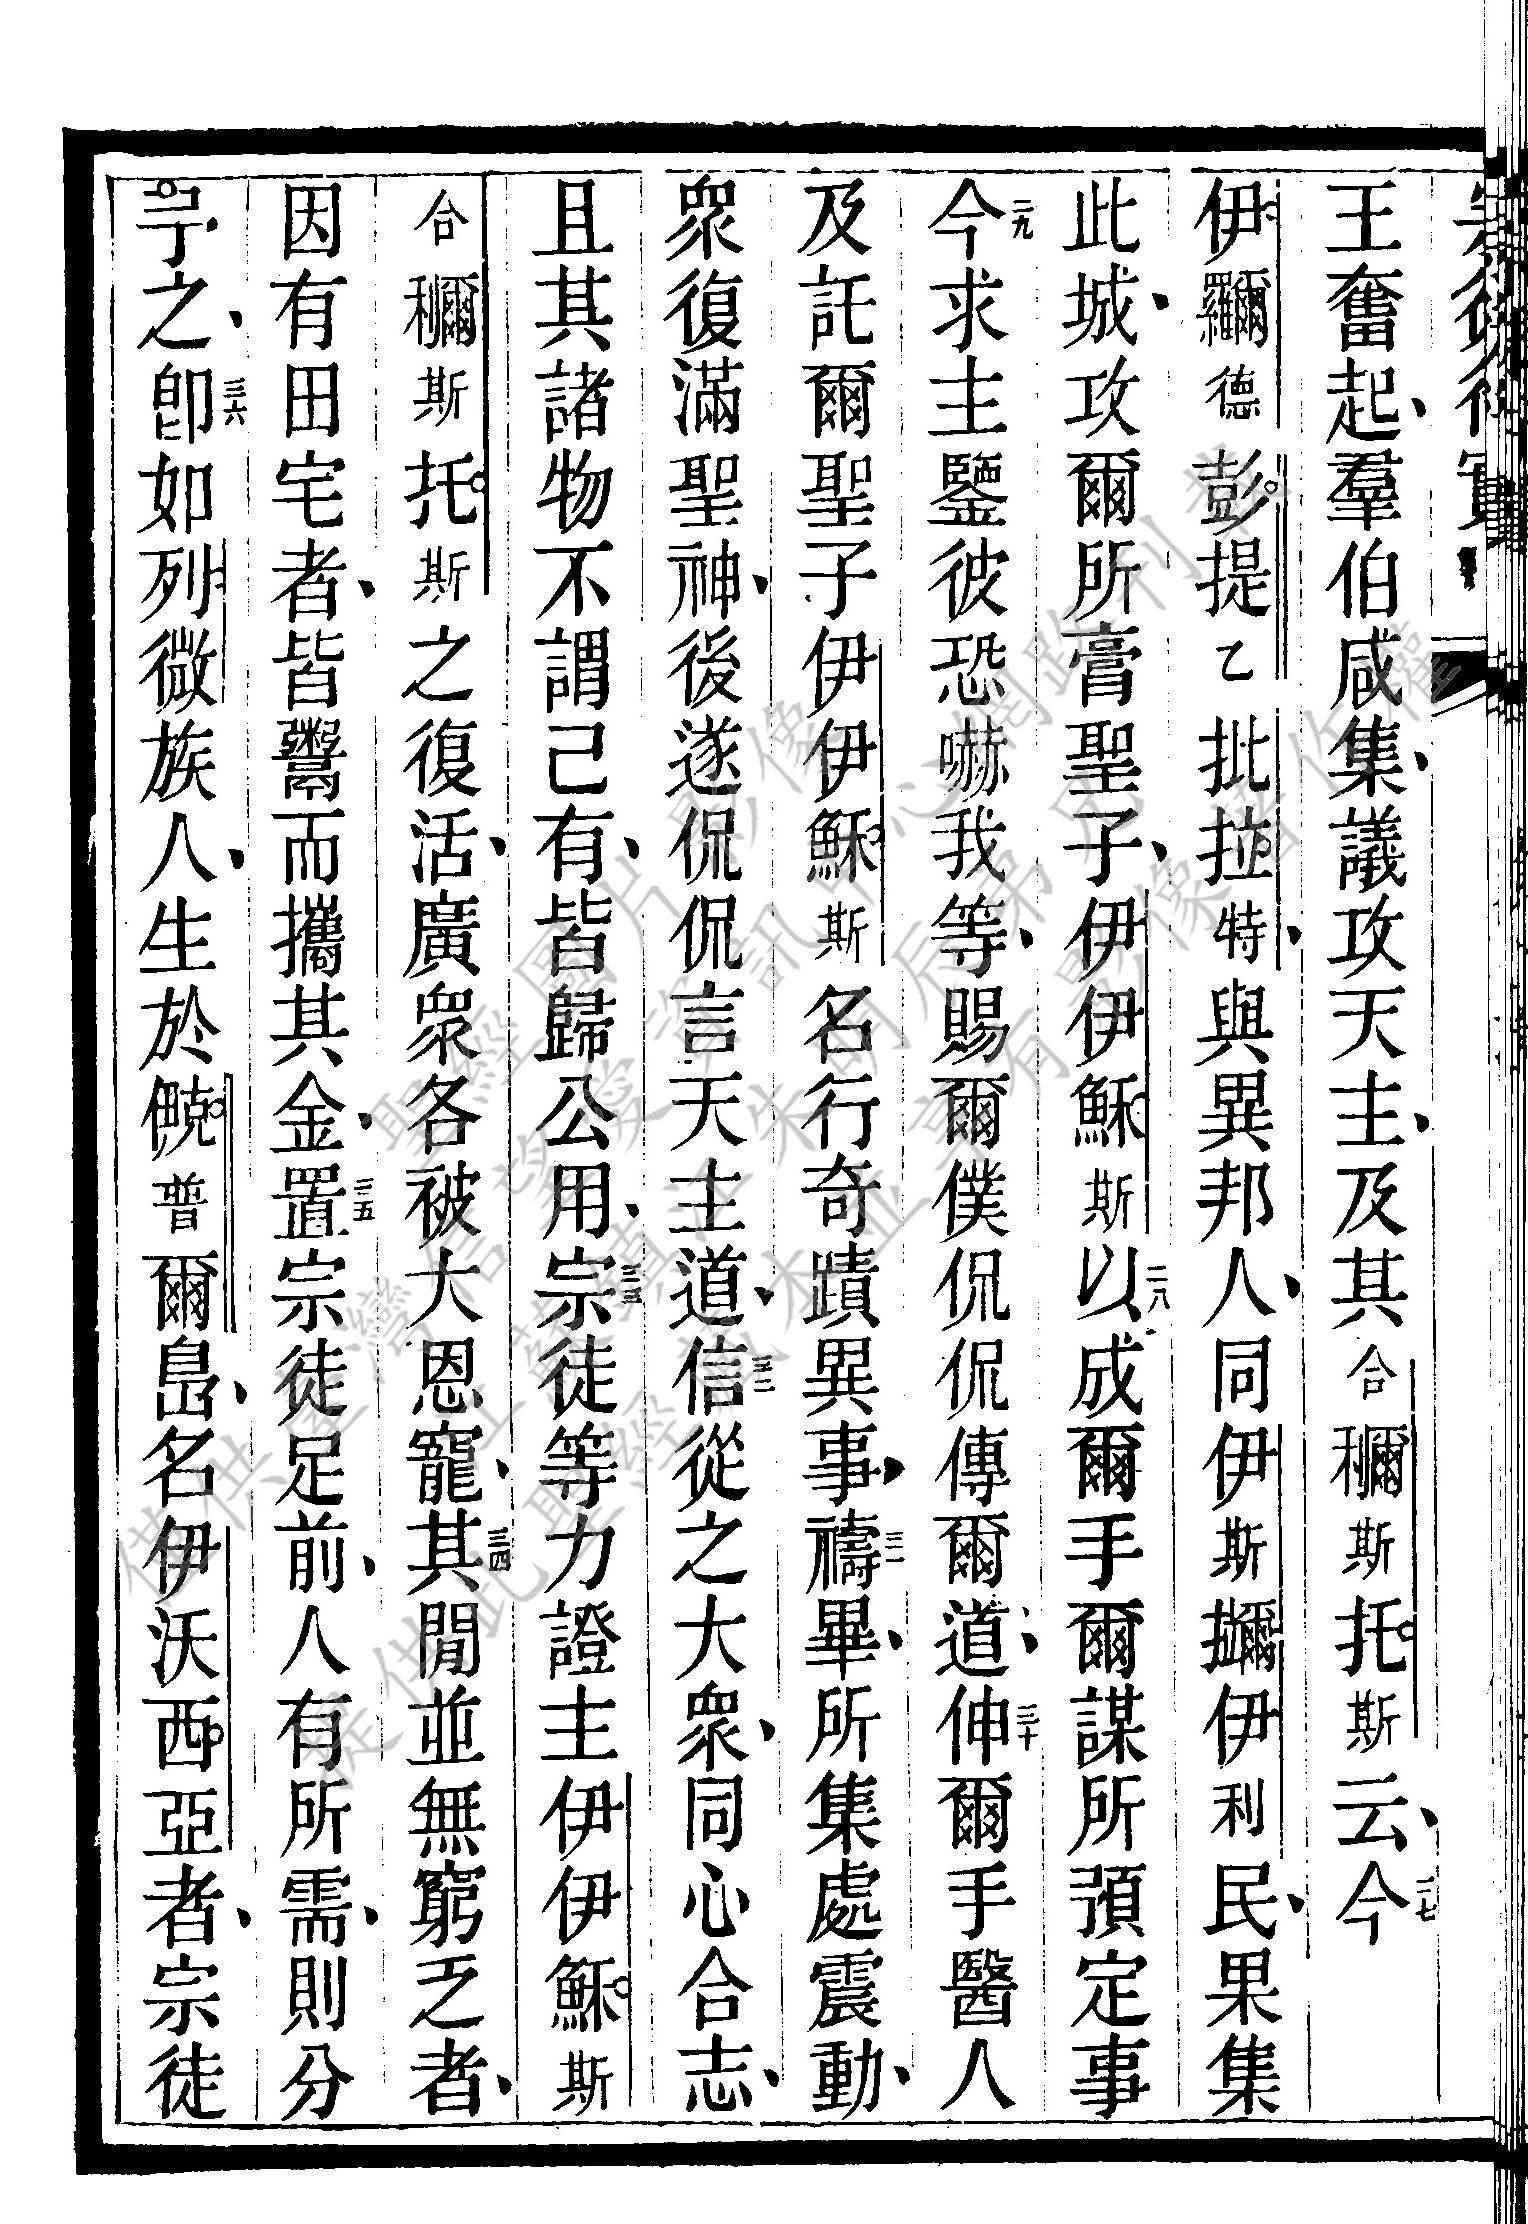 王奮起、羣伯咸集、議攻天主、及其合穪斯托斯云、二七今
伊羅爾德彭提乙批拉特、與異邦人、同伊斯擟伊利民、果集
此城、攻爾所膏聖子、伊伊穌斯二八以成爾手爾謀所預定事
二九今求主鑒彼恐嚇我等、賜爾僕侃侃傳爾道、三十伸爾手醫人
及託爾聖子伊伊穌斯名行奇蹟異事、三一禱畢、所集處震動、
眾復滿聖神、後遂侃侃言天主道、三二信從之大眾、同心合志、
且其諸物不謂己有、皆歸公用、三三宗徒等力證主伊伊穌斯
合利爾斯托斯之復活、廣眾各被大恩寵、三四其閒並無窮乏者、
因有田宅者、皆鬻而攜其金、三五置宗徒足前、人有所需、則分
予之、三六卽如列微族人、生於普爾島、名伊沃西亞者、宗徒